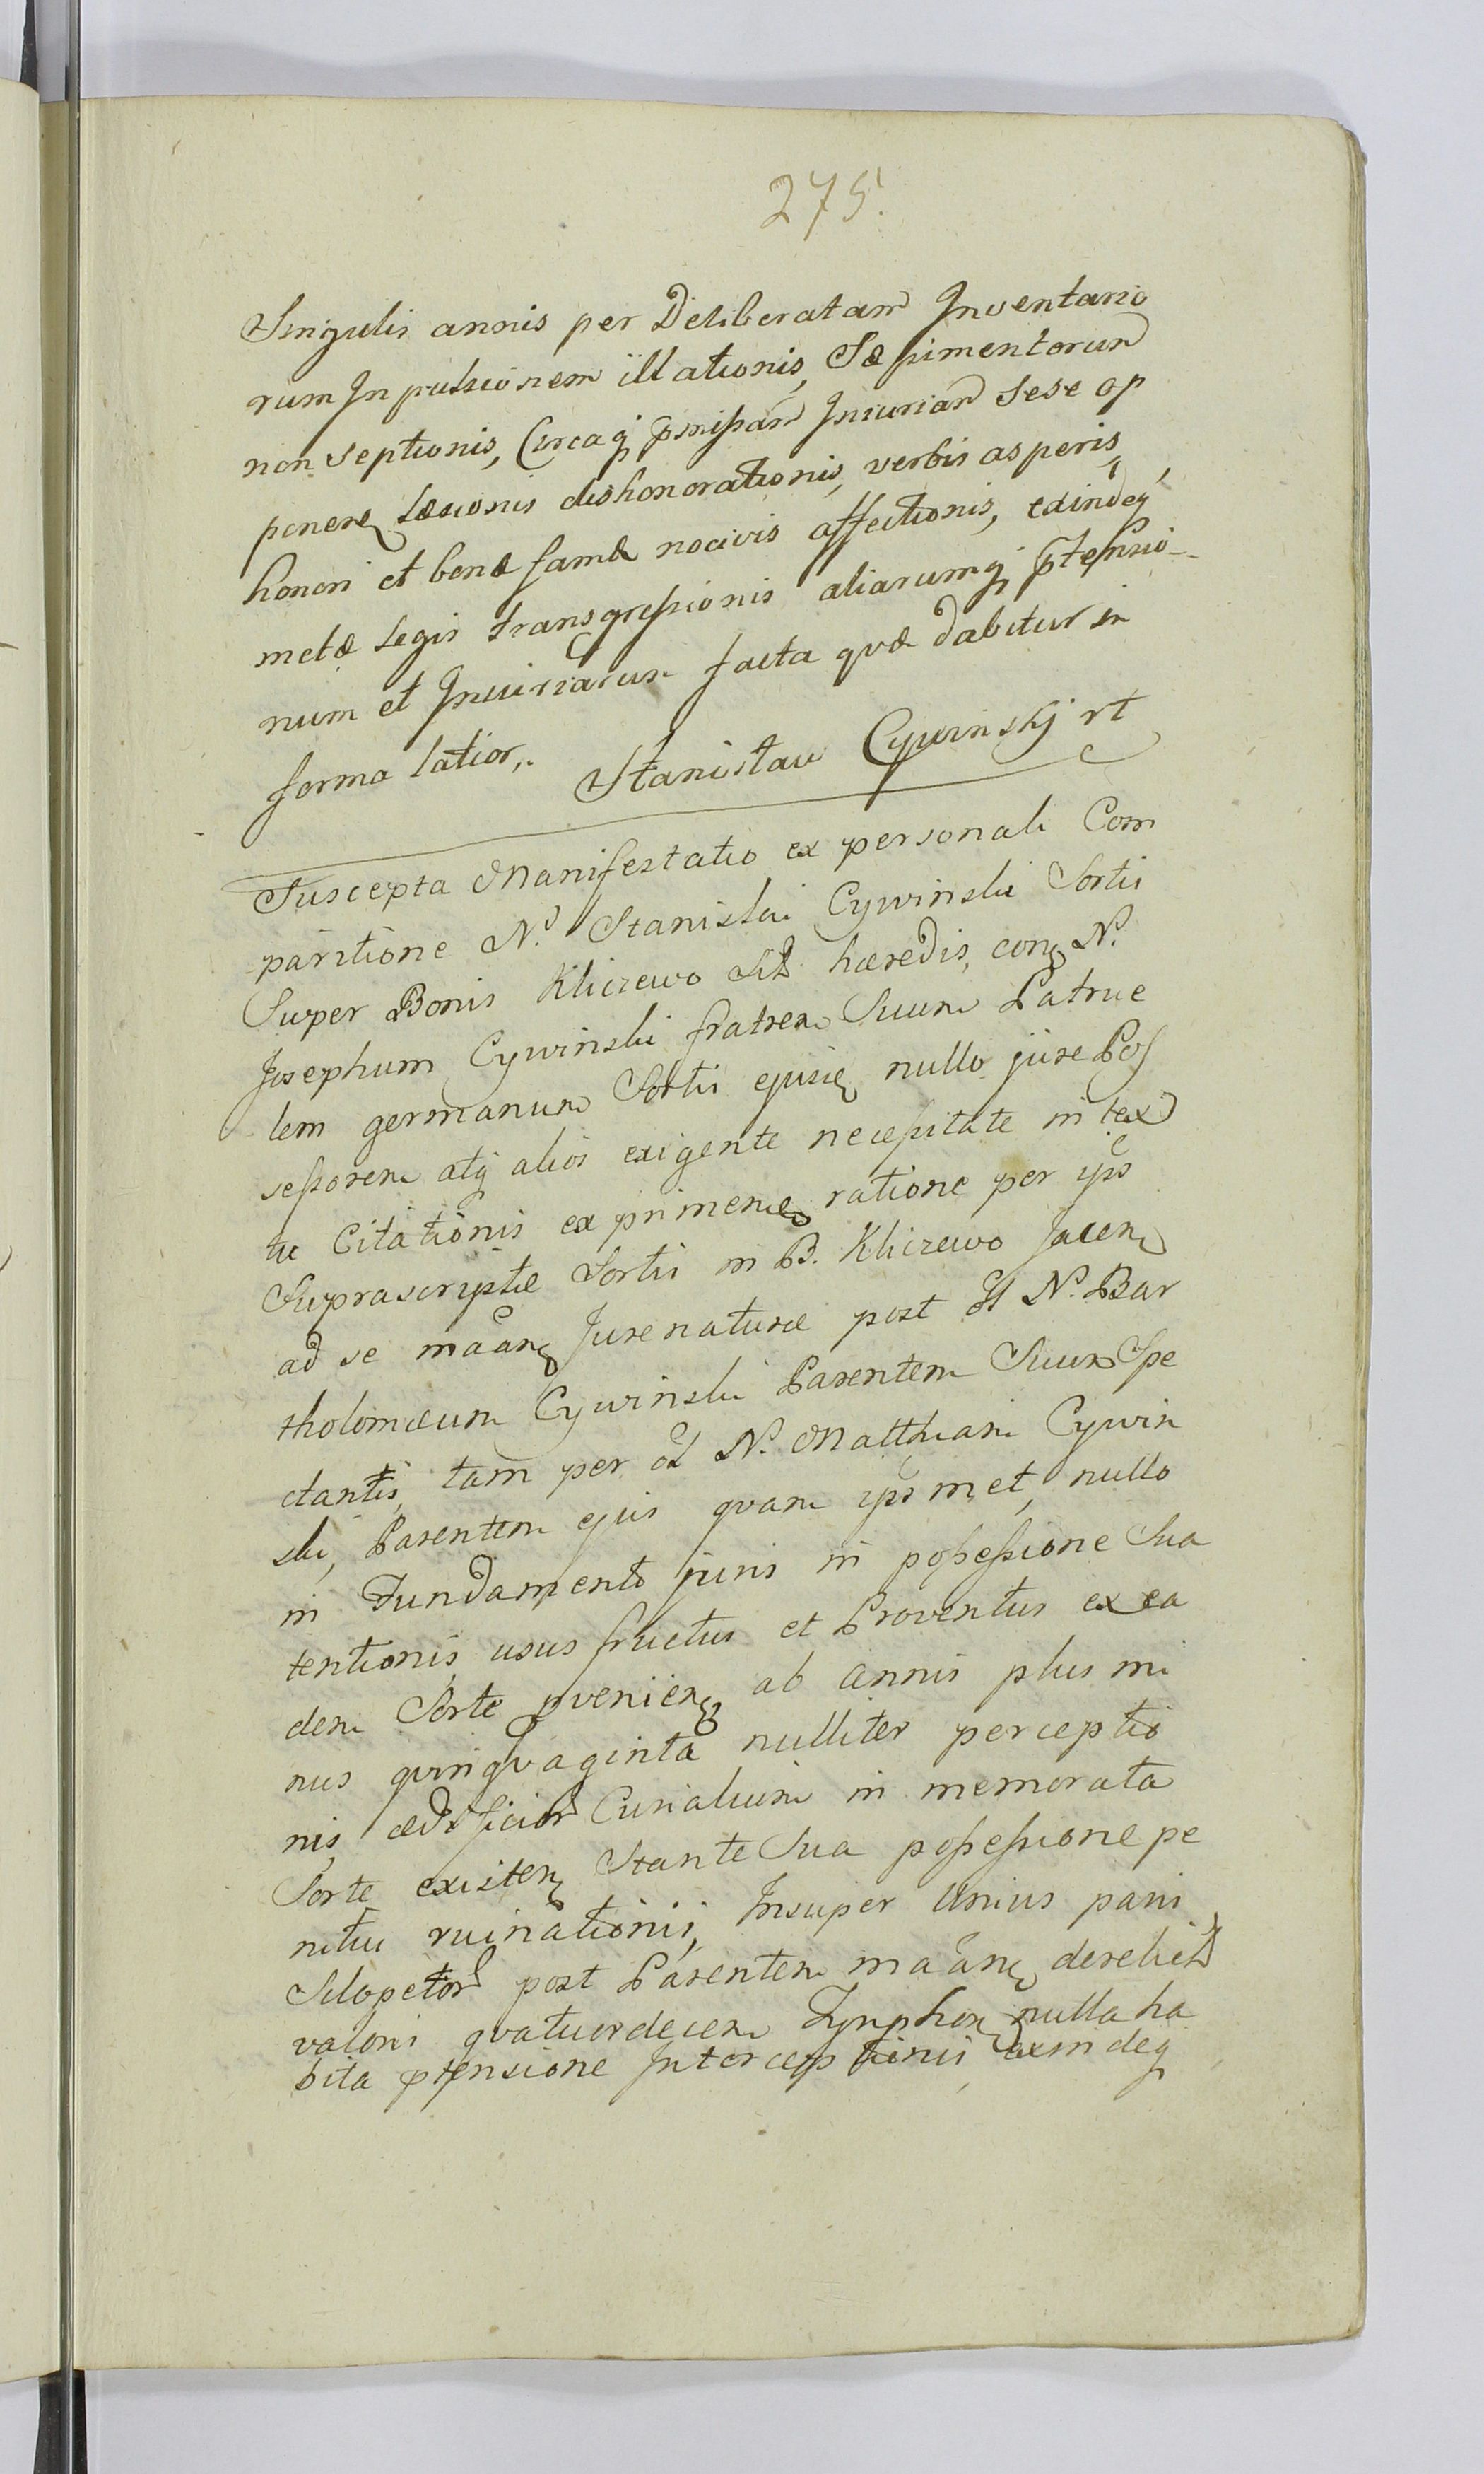 275.
Singulis annis per Deliberatam Inventario
rum In pulsionem illationis, Sæ pimentorum
non septionis, Circaq pmissam Iniuriam sese op
ponenę Læsionis dishonorationis, verbis asperis,
honori et bonæ famæ nocivis affectionis, exindeq
metæ Legis transgressionis aliarumq ptensio-
num et Iniuriarum facta quæ dabitur in
forma latior,.
Stanisław Cywinskj
Suscepta Manifestatio ex personali Com
paritione N. Stanislai Cywinski Sortis
Super Bonis Kliczewo hæredis, con N.
Josephum Cywinski fratrem Suum Patrue
lem germanum Sortis nullo jure Pos
sessorem atq alios exigente necessitate in tex
tu Citationis exprimenę ratione per ips
Suprascriptæ Sortis in B. Kliczewo Jacen
ad se Jure naturæ post N. Bar
tholomæum Cywinski Parentem Suum Spe
ctantis, tam per N. Matthiam Cywin
ski, Parentem ejus quam ips met, nullo
in Fundamento juris in possessione Sua
tentionis usus fructus et Proventus ex ea
dem Sorte pvenien ab annis plus mi
nus quinquaginta nulliter perceptio
nis, ædificior Curialium in memorata
Sorte existen Stante Sua possessione pe
nitus ruinationis, Insuper Unius paris
Sclopetor post Parentem derelict
valoris quatuordecem Tynphor nulla ha
bita ptensione Interceptionis exindeq